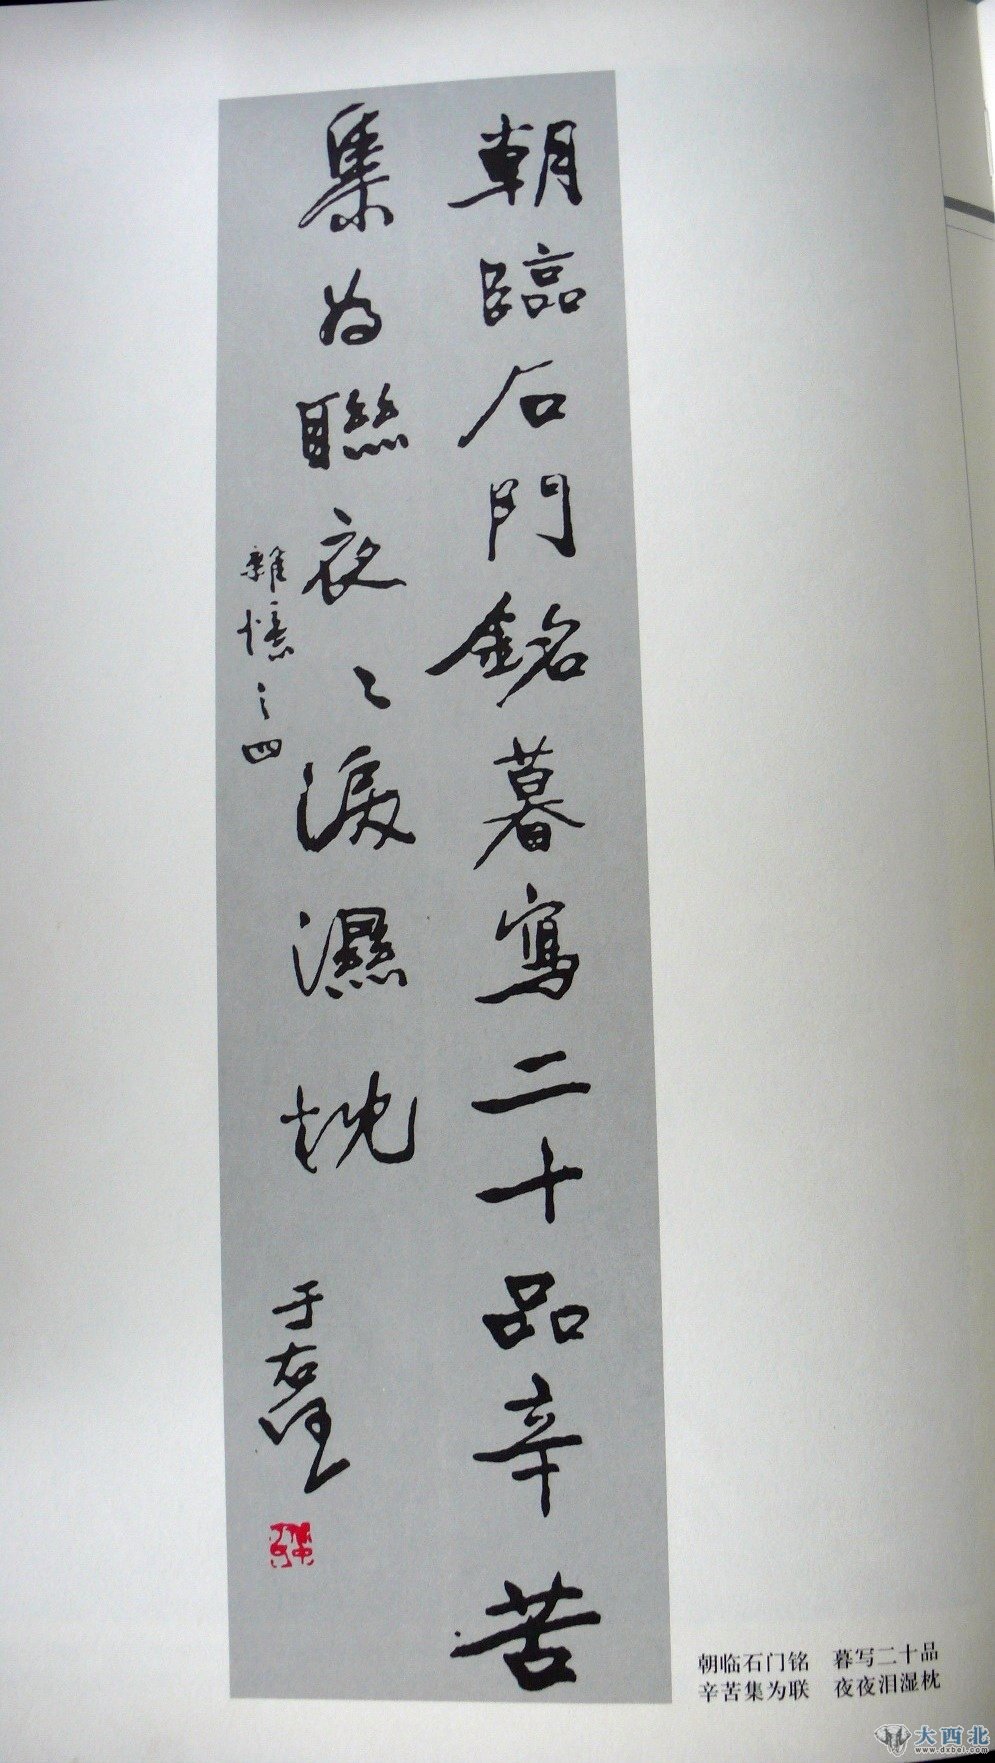 朝臨石門銘暮寫二十品辛苦
集为聯夜〻淚濕枕
雜憶之四
于右任
朝临石门铭　暮写二十品
辛苦集为联　夜夜泪湿枕
大西北
www.dxbei.com